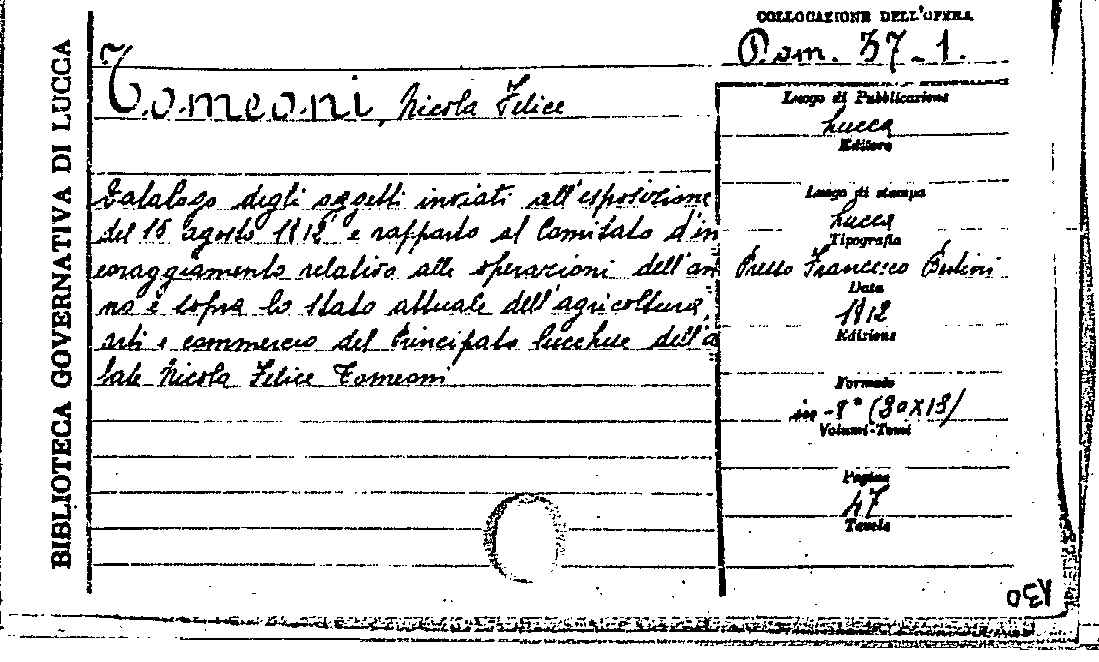 BIBLIOTECA GOVERNATIVA DI LUCCA
COLLOCAZIONE DELL'OPERA
Pam. 37-1.
Tomeoni, Nicola Felice
Catalogo degli oggetti inviati all'esposizione
del 15 agosto 1812 e rapporto al Comitato d'in
coraggiamento relativo alle operazioni dell'an
no e sopra lo stato attuale dell'agricoltura,
arti e commercio del Principato lucchese dell'a
bate Nicola Felice Tomeoni
Luogo di Pubblicazione
Lucca
Editore
Luogo di stampa
Lucca
Tipografia
Presso Francesco Bertini
Data
1812
Edizione
Formato
in-8° (20X13)
Volumi-Tomi
Pagine
47
Tavole